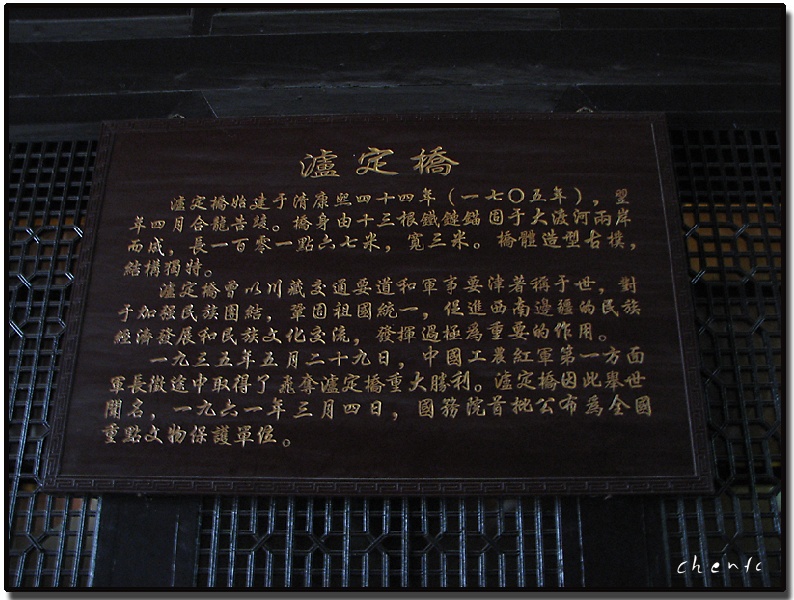 瀘定橋
瀘定橋始建于清康熙四十四年（一七〇五年），翌
年四月合龍告竣。橋身由十三根鐵鏈錨固于大渡河兩岸
而成，長一百零一點六七米，寬三米。橋體造型古樸，
結構獨特。
瀘定橋曾以川藏交通要道和軍事要津著稱于世，對
于加強民族團結，鞏固祖國統一，促進西南邊疆的民族
經濟發展和民族文化交流，發揮過極為重要的作用。
一九三五年五月二十九日，中國工農紅軍第一方面
軍長徵途中取得了飛奪瀘定橋重大勝利。瀘定橋因此舉世
聞名，一九六一年三月四日，國務院首批公布為全國
重點文物保護單位。
chenfc